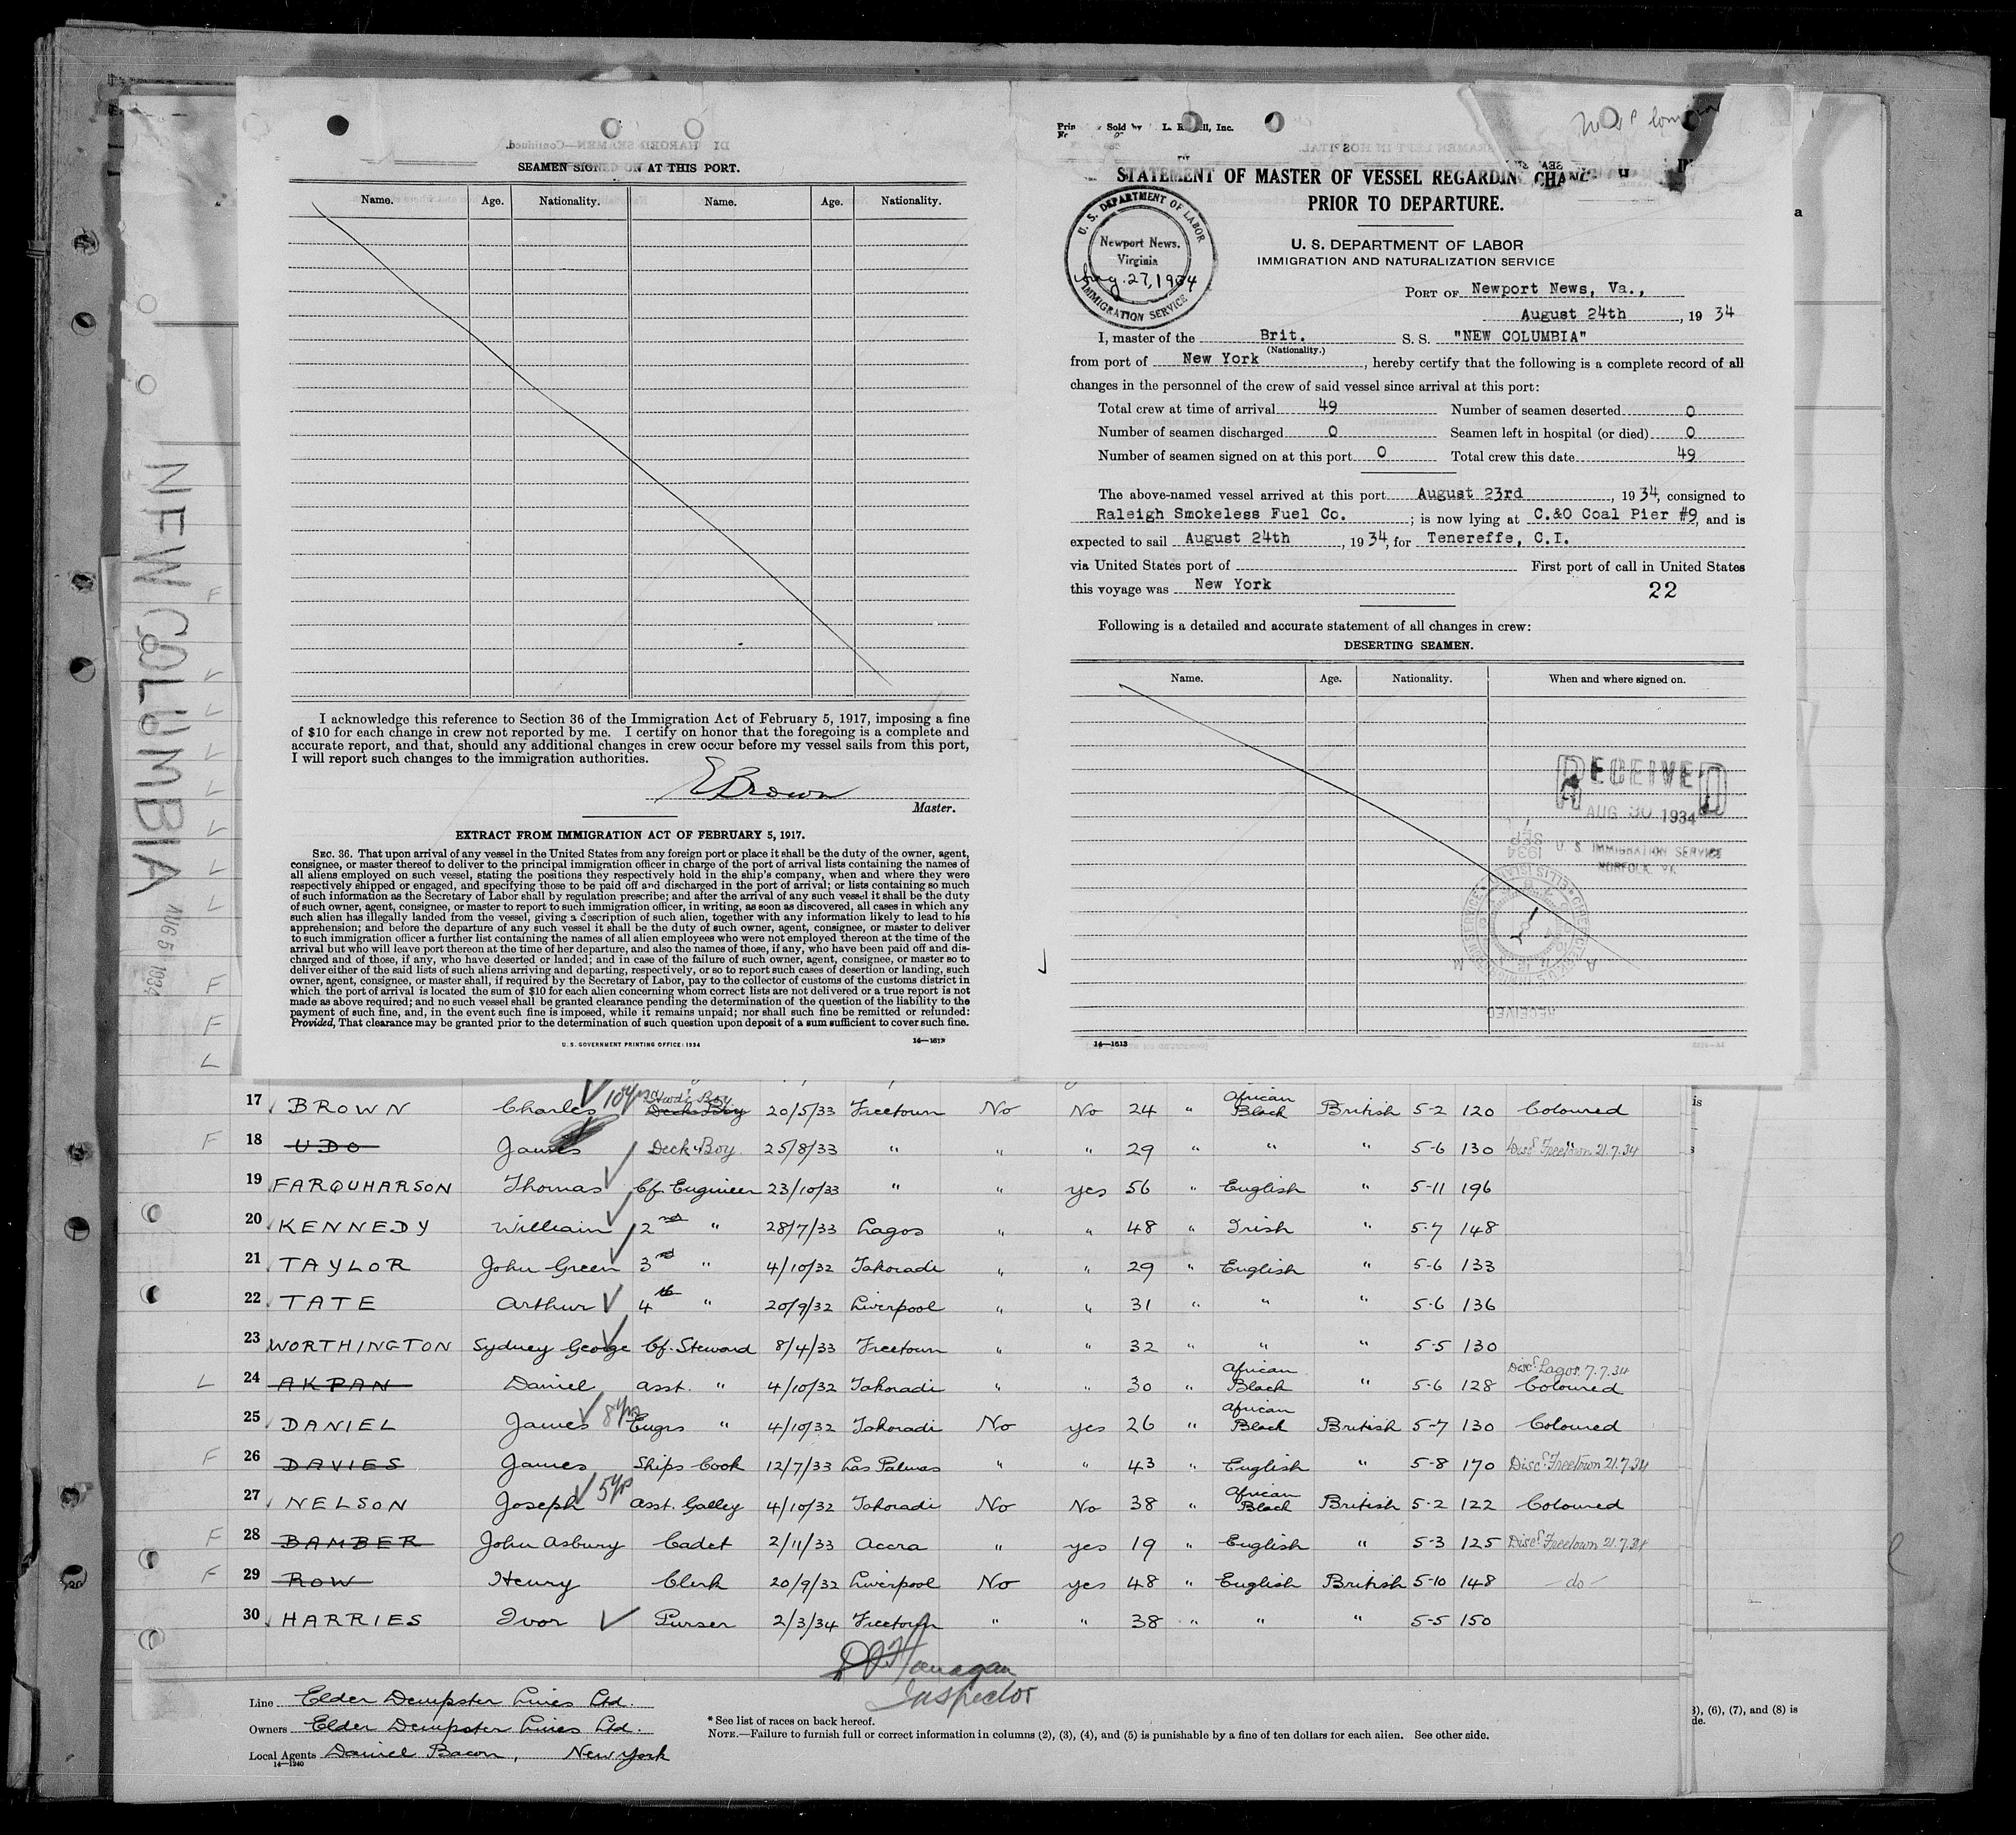 SEAMEN SIGNED ON AT THIS PORT.
Name. Age. Nationality. Name. Age. Nationality.
I acknowledge this reference to Section 36 of the Immigration Act of February 5, 1917, imposing a fine
of $10 for each change in crew not reported by me. I certify on honor that the foregoing is a complete and
accurate report, and that, should any additional changes in crew occur before my vessel sails from this port,
I will report such changes to the immigration authorities.
E Brown
Master.
EXTRACT FROM IMMIGRATION ACT OF FEBRUARY 5, 1917.
SEC. 36. That upon arrival of any vessel in the United States from any foreign port or place it shall be the duty of the owner, agent,
consignee, or master thereof to deliver to the principal immigration officer in charge of the port of arrival lists containing the names of
all aliens employed on such vessel, stating the positions they respectively hold in the ship's company, when and where they were
respectively shipped or engaged, and specifying those to be paid off and discharged in the port of arrival; or lists containing so much
of such information as the Secretary of Labor shall by regulation prescribe; and after the arrival of any such vessel it shall be the duty
of such owner, agent, consignee, or master to report to such immigration officer, in writing, as soon as discovered, all cases in which any
such alien has illegally landed from the vessel, giving a description of such alien, together with any information likely to lead to his
apprehension; and before the departure of any such vessel it shall be the duty of such owner, agent, consignee, or master to deliver
to such immigration officer a further list containing the names of all alien employees who were not employed thereon at the time of the
arrival but who will leave port thereon at the time of her departure, and also the names of those, if any, who have been paid off and dis-
charged and of those, if any, who have deserted or landed; and in case of the failure of such owner, agent, consignee, or master so to
deliver either of the said lists of such aliens arriving and departing, respectively, or so to report such cases of desertion or landing, such
owner, agent, consignee, or master shall, if required by the Secretary of Labor, pay to the collector of customs of the customs district in
which the port of arrival is located the sum of $10 for each alien concerning whom correct lists are not delivered or a true report is not
made as above required; and no such vessel shall be granted clearance pending the determination of the question of the liability to the
payment of such fine, and, in the event such fine is imposed, while it remains unpaid; nor shall such fine be remitted or refunded:
Provided, That clearance may be granted prior to the determination of such question upon deposit of a sum sufficient to cover such fine.
U.S. GOVERNMENT PRINTING OFFICE: 1934
14—1613
Sold by L. Inc.
STATEMENT OF MASTER OF VESSEL REGARDING
PRIOR TO DEPARTURE.
U. S. DEPARTMENT OF LABOR
IMMIGRATION AND NATURALIZATION SERVICE
U. S. DEPARTMENT OF LABOR
Newport News,
Virginia
Aug. 27, 1934
IMMIGRATION SERVICE
PORT OF Newport News, Va.,
August 24th, 1934
I, master of the Brit. S. S. "NEW COLUMBIA"
(Nationality.)
from port of New York, hereby certify that the following is a complete record of all
changes in the personnel of the crew of said vessel since arrival at this port:
Total crew at time of arrival 49 Number of seamen deserted 0
Number of seamen discharged 0 Seamen left in hospital (or died) 0
Number of seamen signed on at this port 0 Total crew this date 49
The above-named vessel arrived at this port August 23rd, 1934, consigned to
Raleigh Smokeless Fuel Co.; is now lying at C.&O Coal Pier #9, and is
expected to sail August 24th, 1934, for Tenereffe, C.I.
via United States port of First port of call in United States
this voyage was New York
22
Following is a detailed and accurate statement of all changes in crew:
DESERTING SEAMEN.
Name. Age. Nationality. When and where signed on.
RECEIVED
AUG 30 1934
U S IMMIGRATION SERVICE
NORFOLK VA
14—1613
NEW COLUMBIA
AUG 5 1934
17 BROWN Charles 10 yrs Deck Boy 20/5/33 Freetown No No 24 " African Black British 5-2 120 Coloured
F 18 UDO James Deck Boy. 25/8/33 " " " 29 " " " 5-6 130 Disc. Freetown 21.7.34
19 FARQUHARSON Thomas Cf. Engineer 23/10/33 " " yes 56 " English " 5-11 196
20 KENNEDY William 2nd " 28/7/33 Lagos " " 48 " Irish " 5-7 148
21 TAYLOR John Green 3rd " 4/10/32 Takoradi " " 29 " English " 5-6 133
22 TATE Arthur 4th " 20/9/32 Liverpool " " 31 " " " 5-6 136
23 WORTHINGTON Sydney George Cf. Steward 8/4/33 Freetown " " 32 " " " 5-5 130
L 24 AKPAN Daniel asst. " 4/10/32 Takoradi " " 30 " African Black " 5-6 128 Disc. Lagos 7.7.34 Coloured
25 DANIEL James 8 yrs Engrs " 4/10/32 Takoradi No yes 26 " African Black British 5-7 130 Coloured
F 26 DAVIES James Ships Cook 12/7/33 Las Palmas " " 43 " English " 5-8 170 Disc. Freetown 21.7.34
27 NELSON Joseph 5 yrs asst. Galley 4/10/32 Takoradi No No 38 " African Black British 5-2 122 Coloured
F 28 BAMBER John Asbury Cadet 2/11/33 Accra " yes 19 " English " 5-3 125 Disc. Freetown 21.7.34
F 29 ROW Henry Clerk 20/9/32 Liverpool No yes 48 " English British 5-10 148 -do-
30 HARRIES Ivor Purser 2/3/34 Freetown " " 38 " " " 5-5 150
Flanagan
Inspector
Line Elder Dempster Lines Ltd.
Owners Elder Dempster Lines Ltd.
Local Agents Daniel Bacon, New York
14—1240
* See list of races on back hereof.
NOTE.—Failure to furnish full or correct information in columns (2), (3), (4), and (5) is punishable by a fine of ten dollars for each alien. See other side.
(6), (7), and (8) is